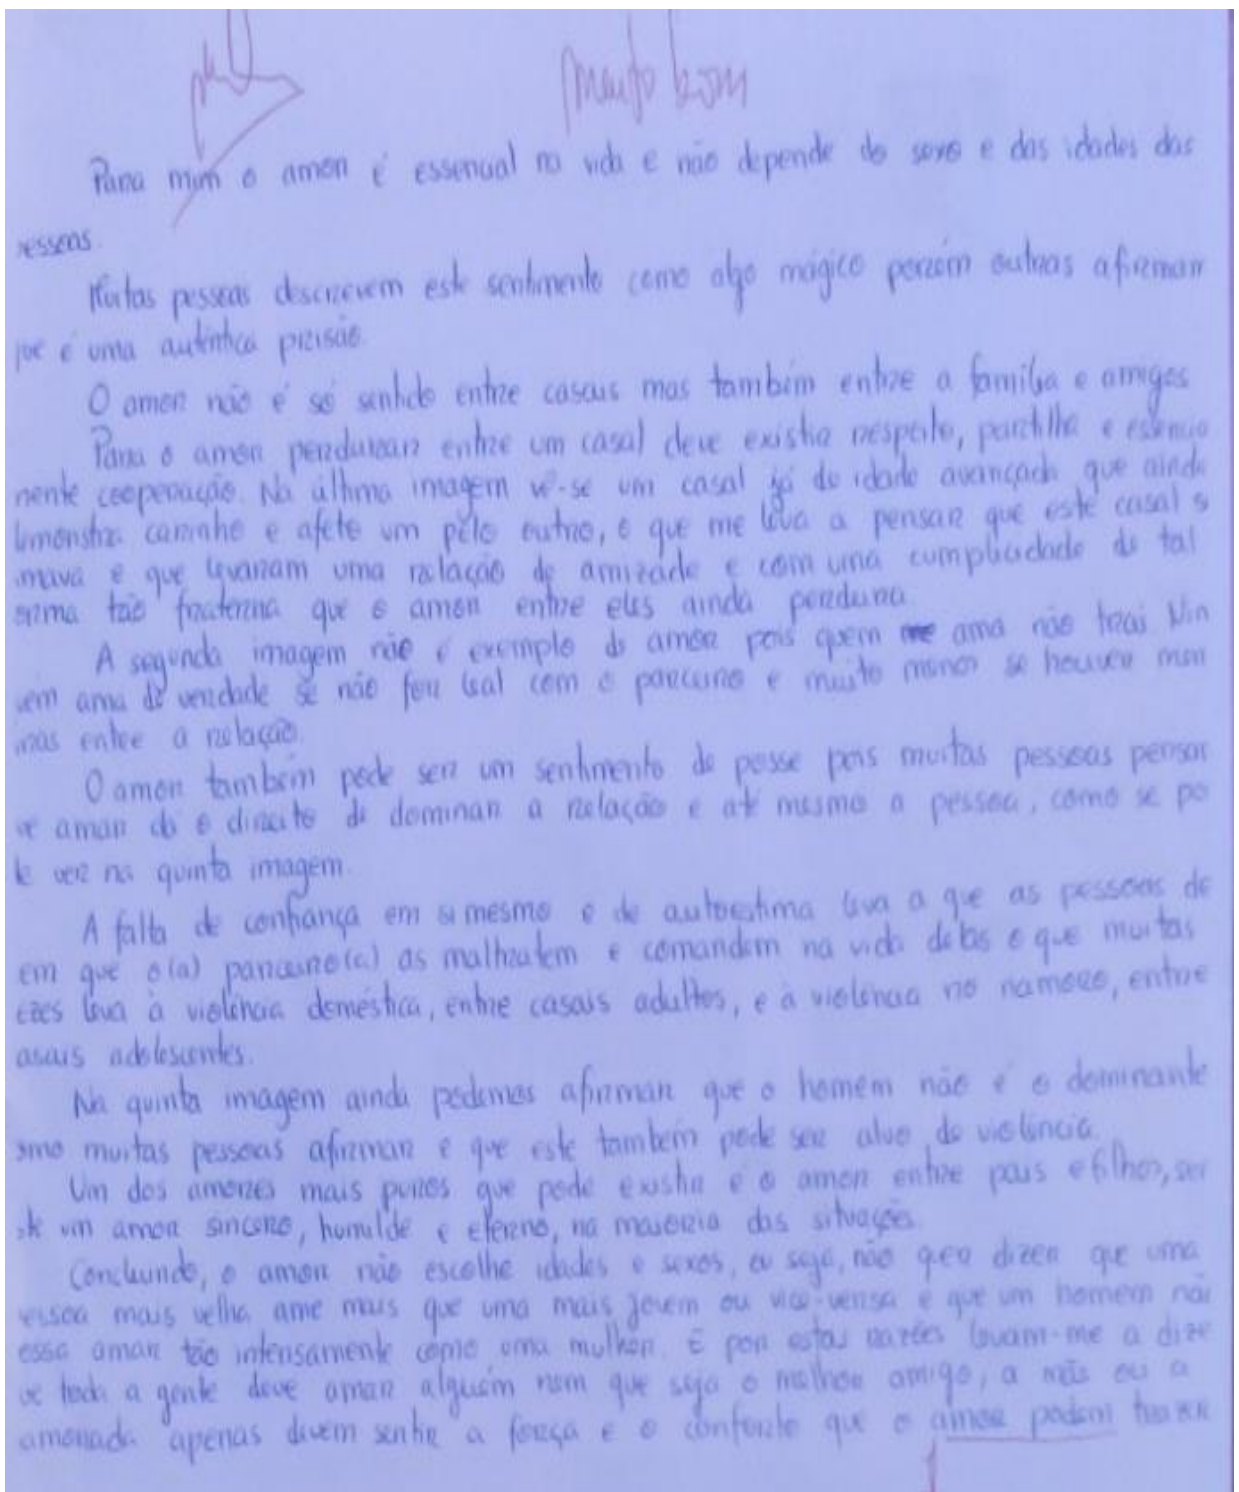 Muito bom
Para mim o amor é essencial na vida e não depende do sexo e das idades das
essoas.
Muitas pessoas descrevem este sentimento como algo mágico porém outras afirmam
que é uma autêntica prisão.
O amor não é só sentido entre casais mas também entre a família e amigos
Para o amor perdurar entre um casal deve existir respeito, partilha e essencia
mente cooperação. Na última imagem vê-se um casal já de idade avançada que ainda
demonstra carinho e afeto um pelo outro, o que me leva a pensar que este casal s
amava e que levaram uma relação de amizade e com uma cumplicidade de tal
orma tão fraterna que o amor entre eles ainda perdura.
A segunda imagem não é exemplo de amor pois quem ama não trai. Nin
uem ama de verdade se não for leal com o parceiro e muito menos se houver men
iras entre a relação.
O amor também pode ser um sentimento de posse pois muitas pessoas pensam
ue amar dá o direito de dominar a relação e até mesmo a pessoa, como se po
de ver na quinta imagem.
A falta de confiança em si mesmo e de autoestima leva a que as pessoas de
em que o(a) parceiro(a) as maltratem e comandem na vida delas o que muitas
ezes leva à violência doméstica, entre casais adultos, e à violência no namoro, entre
asais adolescentes.
Na quinta imagem ainda podemos afirmar que o homem não é o dominante
omo muitas pessoas afirmam e que este também pode ser alvo de violência.
Um dos amores mais puros que pode existir é o amor entre pais e filhos, ser
ste um amor sincero, humilde e eterno, na maioria das situações.
Concluindo, o amor não escolhe idades e sexos, ou seja, não quer dizer que uma
essoa mais velha ame mais que uma mais jovem ou vice-versa e que um homem não
ossa amar tão intensamente como uma mulher. E por estas razões levam-me a dize
ue toda a gente deve amar alguém nem que seja o melhor amigo, a mãe ou a
amorada apenas devem sentir a força e o conforto que o amor podem trazer